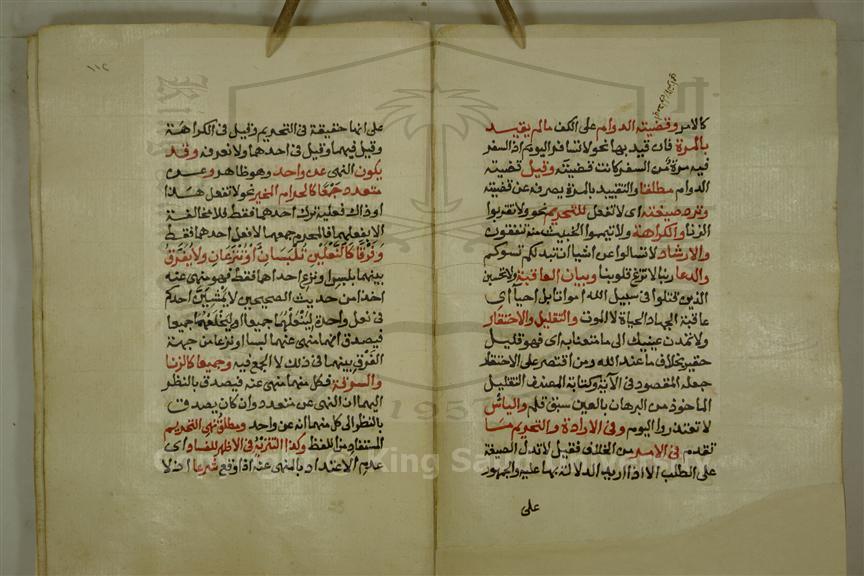 كالامر وقضيته الدوام على الكف مالم يقيد
بالمرة فان قيد بها نحو لا تسافر اليوم اذ السفر
فيه مرة من السفر كانت قضيته وقيل قضيته
الدوام مطلقا والتقييد بالمرة يصرفه عن قضيته
وترد صيغته اى لا تفعل للتحريم نحو ولا تقربوا
الزنا والكراهة ولا تيمموا الخبيث منه تنفقون
والارشاد لا تسالوا عن اشيا ان تبد لكم تسوكم
والدعا ربنا لا تزغ قلوبنا وبيان العاقبة ولا تحسبن
الذين قتلوا فى سبيل الله امواتا بل احيا اى
عاقبة الجهاد الحياة لا الموت والتقليل والاحتقار
ولا تمدن عينيك الى ما متعنا به اى فهو قليل
حقير بخلاف ما عند الله ومن اقتصر على الاحتقار
جعله المقصود فى الآية وكتابة المصنف التقليل
الماخوذ من البرهان بالعين سبق قلم والياس
لا تعتذروا اليوم وفى الارادة والتحريم ما
تقدم فى الامر من الخلاف فقيل لا تدل الصيغة
على الطلب الا اذا اريد الدلالة بها عليه والجمهور
على
١١٢
على انها حقيقة فى التحريم وقيل فى الكراهة
وقيل فيهما وقيل فى احدهما ولا نعرفه وقد
يكون النهى عن واحد وهو ظاهر وعن
متعدد جمعا كالحرام المخير نحو لا تفعل هذا
او ذاك فعليه ترك احدهما فقط فلا مخالفة
الا بفعلهما فالمحرم جمعهما لا فعل احدهما فقط
وفرقا كالنعلين تلبسان او تنزعان ولا يفرق
بينهما بلبس او نزع احداهما فقط فهو منهى عنه
اخذا من حديث الصحيحين لا يمشين احدكم
فى نعل واحدة لينعلهما جميعا او ليخلعهما جميعا
فيصدق انهما منهى عنهما لبسا او نزعا من جهة
الفرق بينهما فى ذلك لا الجمع فيه وجميعا كالزنا
والسرقة فكل منهما منهى عنه فيصدق بالنظر
اليهما ان النهى عن متعدد وان كان يصدق
بالنظر الى كل منهما انه عن واحد ومطلق نهى التحريم
المستفاد من اللفظ وكذا التنزيه فى الاظهر للفساد اى
عدم الاعتداد بالمنهى عنه اذا وقع شرعا اذ لا
1957
King Sa